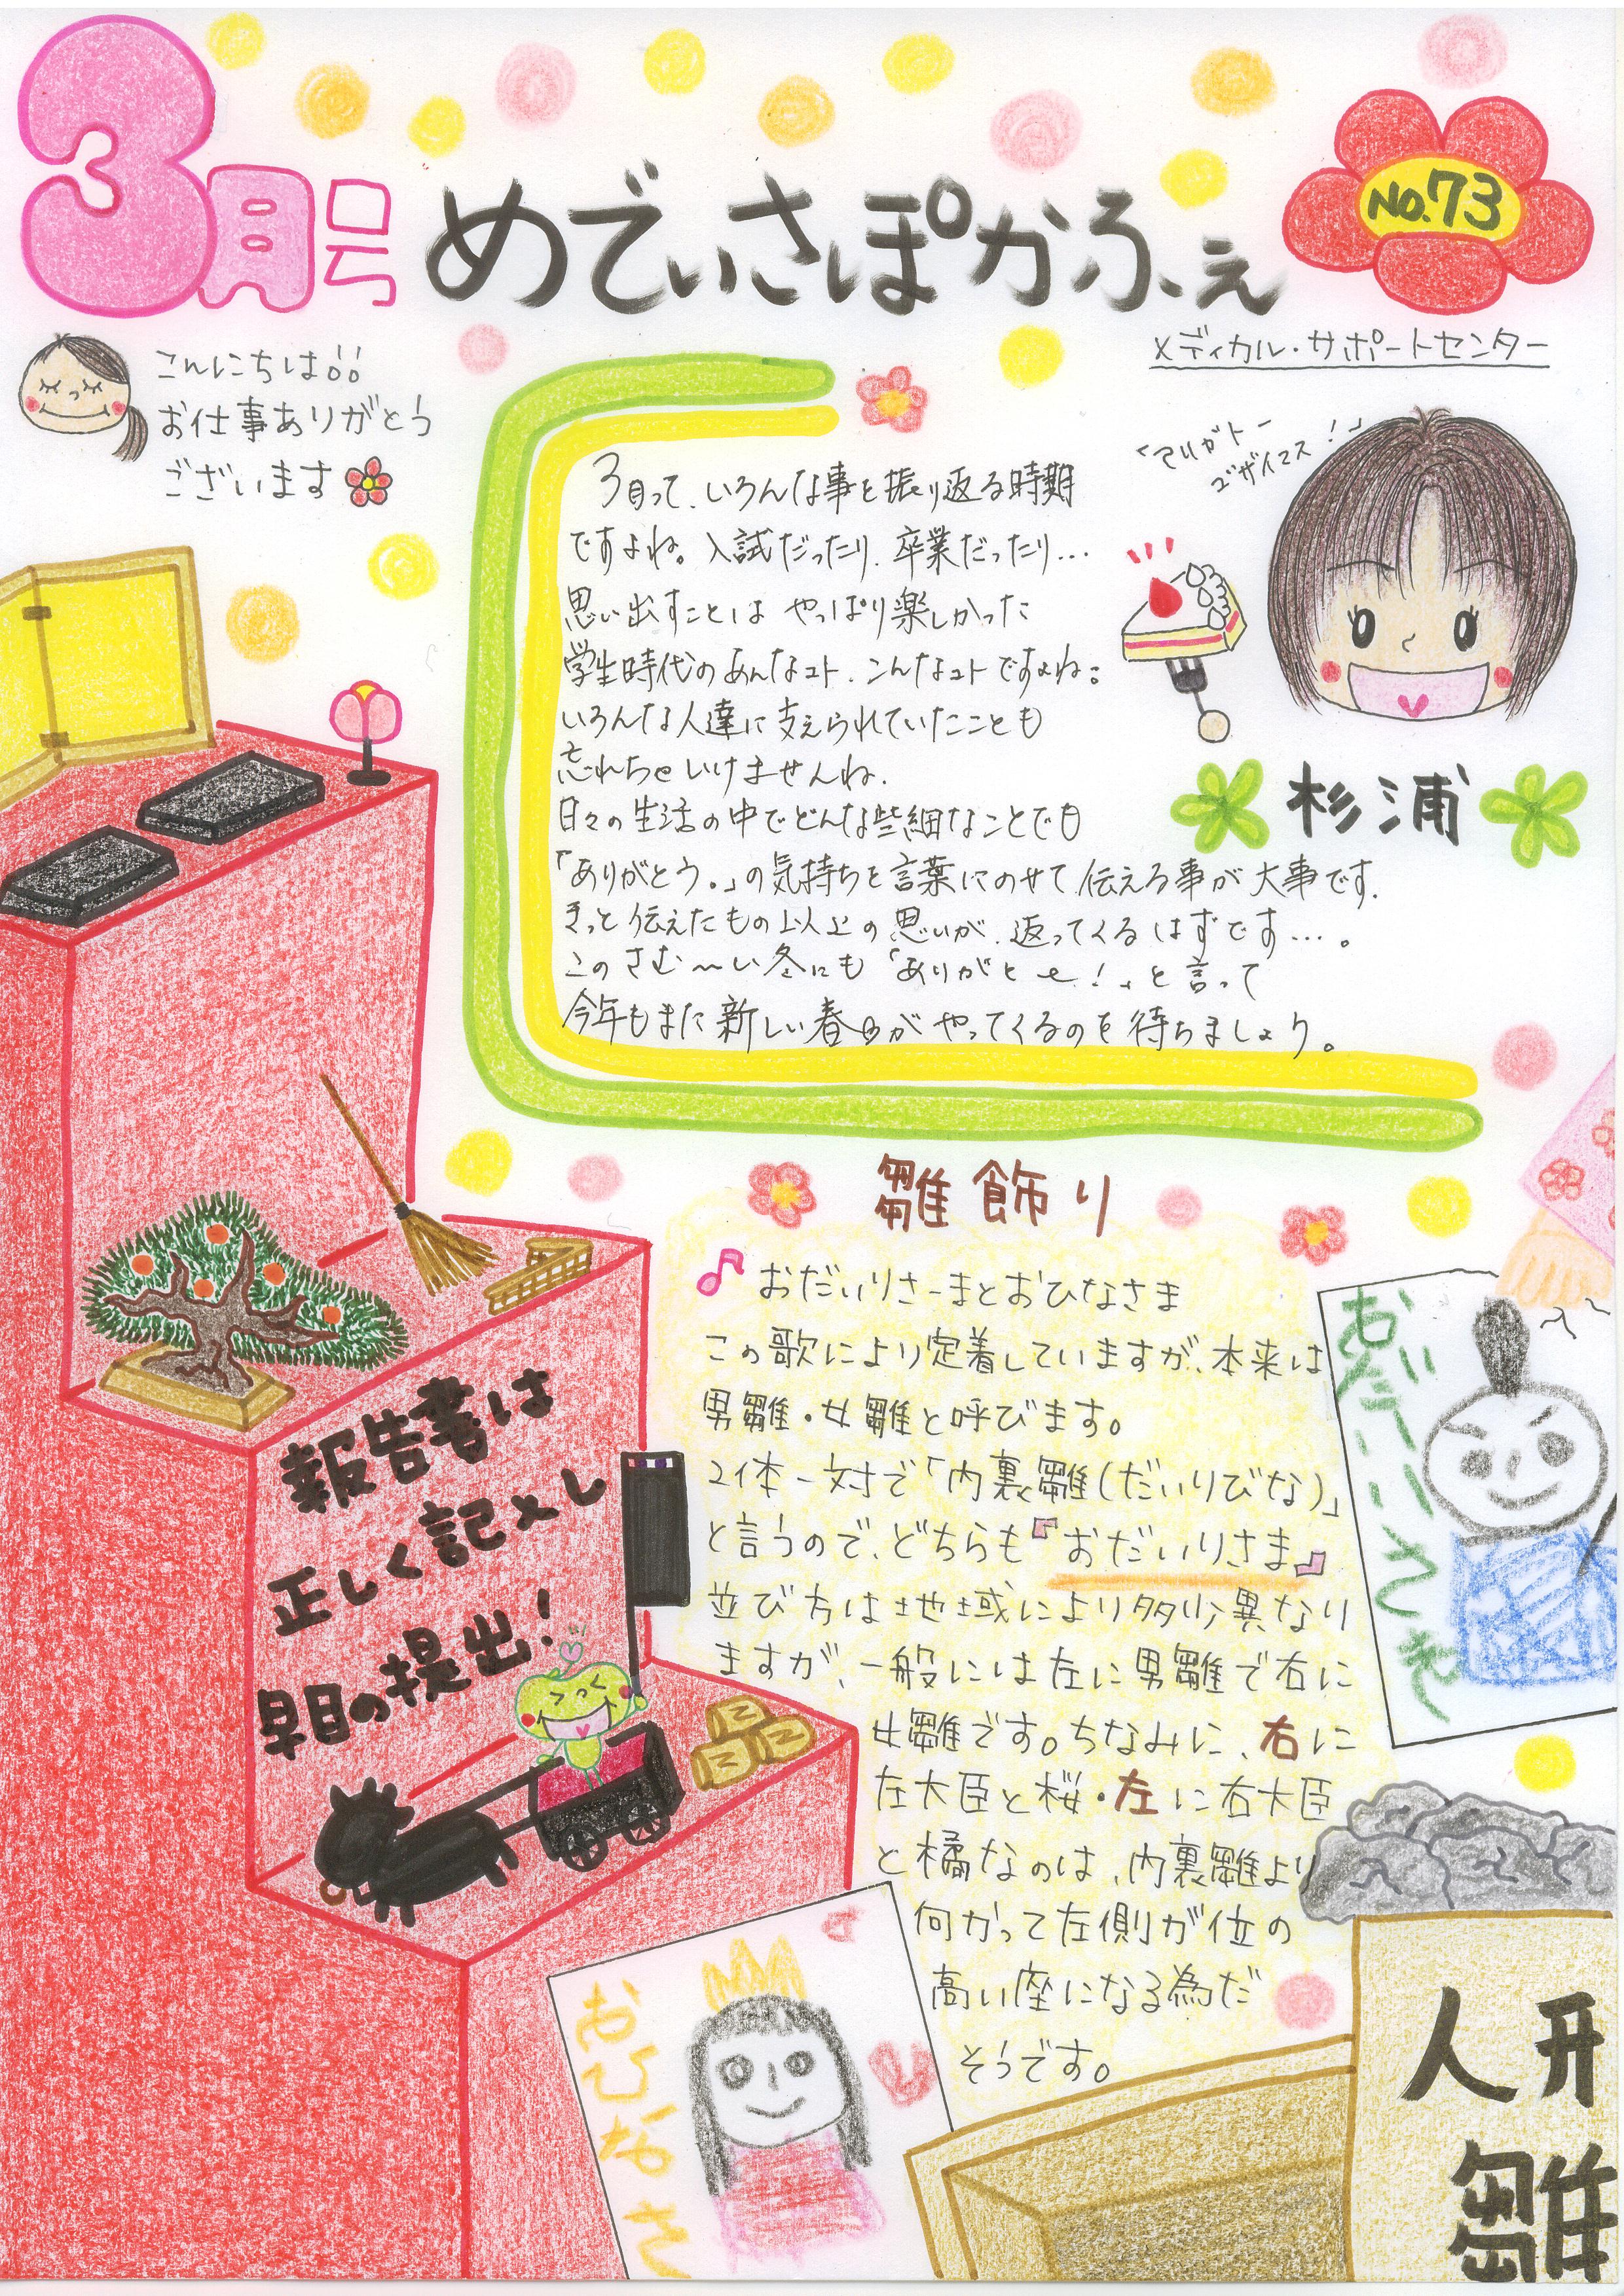 3月号
めでぃさぽかふぇ
No.73
メディカル・サポートセンター
こんにちは!!
お仕事ありがとう
ございます
「アリガトー
ゴザイマス!」
杉浦
3月って、いろんな事を振り返る時期
ですよね。入試だったり、卒業だったり…
思い出すことは やっぱり楽しかった
学生時代のあんなコト、こんなコトですよね。
いろんな人達に支えられていたことも
忘れちゃいけませんね.
日々の生活の中でどんな些細なことでも
「ありがとう。」の気持ちを言葉にのせて伝える事が大事です.
きっと伝えたもの以上の思いが、返ってくるはずです…。
このさむ〜い冬にも「ありがと〜!」と言って
今年もまた新しい春がやってくるのを待ちましょう。
雛飾り
♪おだいりさーまとおひなさま
この歌により定着していますが、本来は
男雛・女雛と呼びます。
2体一対で「内裏雛(だいりびな)」
と言うので、どちらも『おだいりさま』
並び方は地域により多少異なり
ますが、一般には左に男雛で右に
女雛です。ちなみに、右に
左大臣と桜・左に右大臣
と橘なのは、内裏雛より
向かって左側が位の
高い座になる為だ
そうです。
報告書は
正しく記入し
早目の提出!
おだいりさま
おひなさ
人形
雛